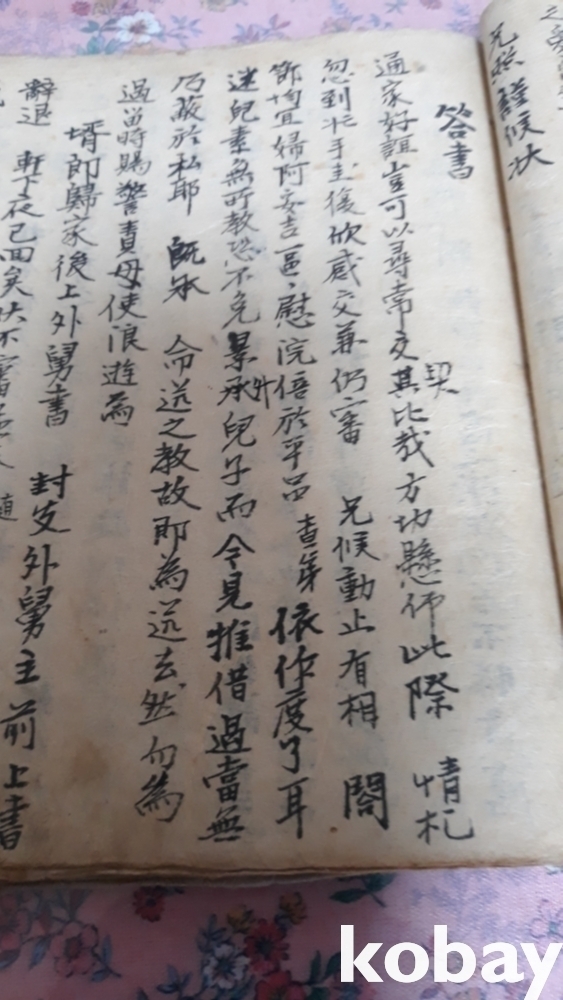 兄照 謹候狀
答書
通家好誼豈可以尋常交契其比哉方切懸仰此際 情札
忽到忙手圭復欣感交兼仍審 兄候動止有相 閤
節均宜婦阿亦吉區〃慰浣倍於平品 査弟依作度了耳
迷兒素無所教恐不免累升承兒子而今見推借過當無
乃蔽於私耶 旣承 命送之教故卽為送去然勿為
過當時賜警責毋使浪遊為
壻郞歸家後上外舅書 封皮外舅主前上書
辭退 軒下夜已回矣伏不審